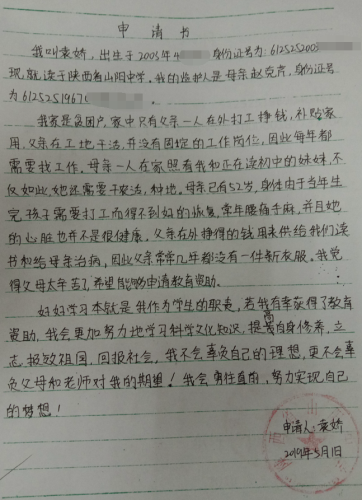 申请书
我叫袁娇，出生于2003年4 身份证号为：612525200
现就读于陕西省山阳中学。我的监护人是母亲赵克芹，身份证号
为612525196
我家是贫困户，家中只有父亲一人在外打工挣钱，补贴家
用，父亲在工地干活，并没有固定的工作岗位，因此每年都
需要找工作。母亲一人在家照看我和正在读初中的妹妹，不
仅如此，她还需要干家活，种地。母亲已有52岁，身体由于当年生
完孩子需要打工而得不到好的恢复，常年腰痛手麻，并且她
的心脏也并不是很健康，父亲在外挣得的钱用来供给我们读
书和给母亲治病，因此父亲常常几年都没有一件新衣服。我觉
得父母太辛苦了，希望能够申请教育资助。
好好学习本就是我作为学生的职责，若我有幸获得了教育
资助，我会更加努力地学习科学文化知识，提高自身修养，立
志报效祖国，回报社会，我不会辜负自己的理想，更不会辜
负父母和老师对我的期望！我会勇往直前，努力实现自己
的梦想！
申请人：袁娇
2019年5月1日